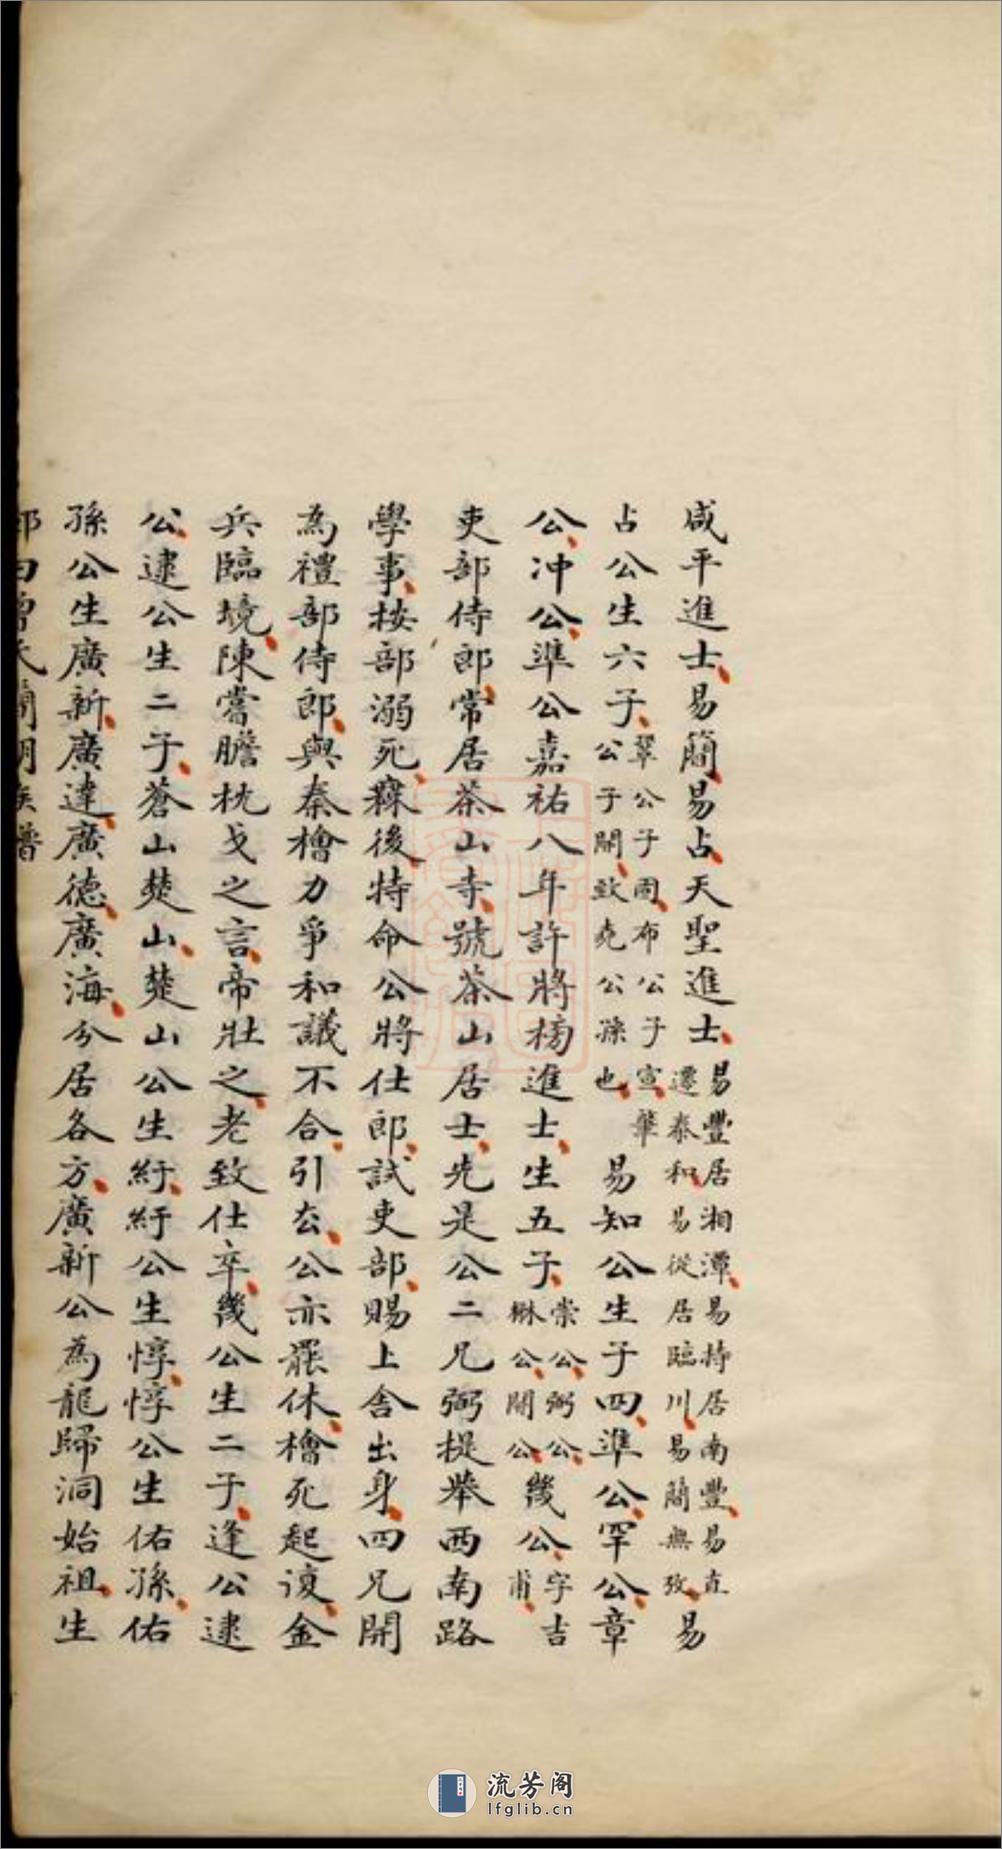 咸平進士易簡易占天聖進士易豐居湘潭易持居南豐易直遷泰和易從居臨川易簡無攷易
占公生六子鞏公子開布公子宣肇公子開致堯公孫也易知公生子四準公罕公章
公沖公準公嘉祐八年許將榜進士生五子棠公弼公楙公開公幾公字吉甫
吏部侍郎常居茶山寺號茶山居士先是公二兄弼提舉西南路
學事按部溺死寐後特命公將仕郎試吏部賜上舍出身四兄開
為禮部侍郎與秦檜力爭和議不合引去公亦罷休檜死起復金
兵臨境陳嘗膽枕戈之言帝壯之老致仕卒幾公生二子逢公逮
公逮公生二子蒼山楚山楚山公生紆紆公生惇惇公生佑孫佑
孫公生廣新廣達廣德廣海分居各方廣新公為龍歸洞始祖生
流芳阁
lfglib.cn